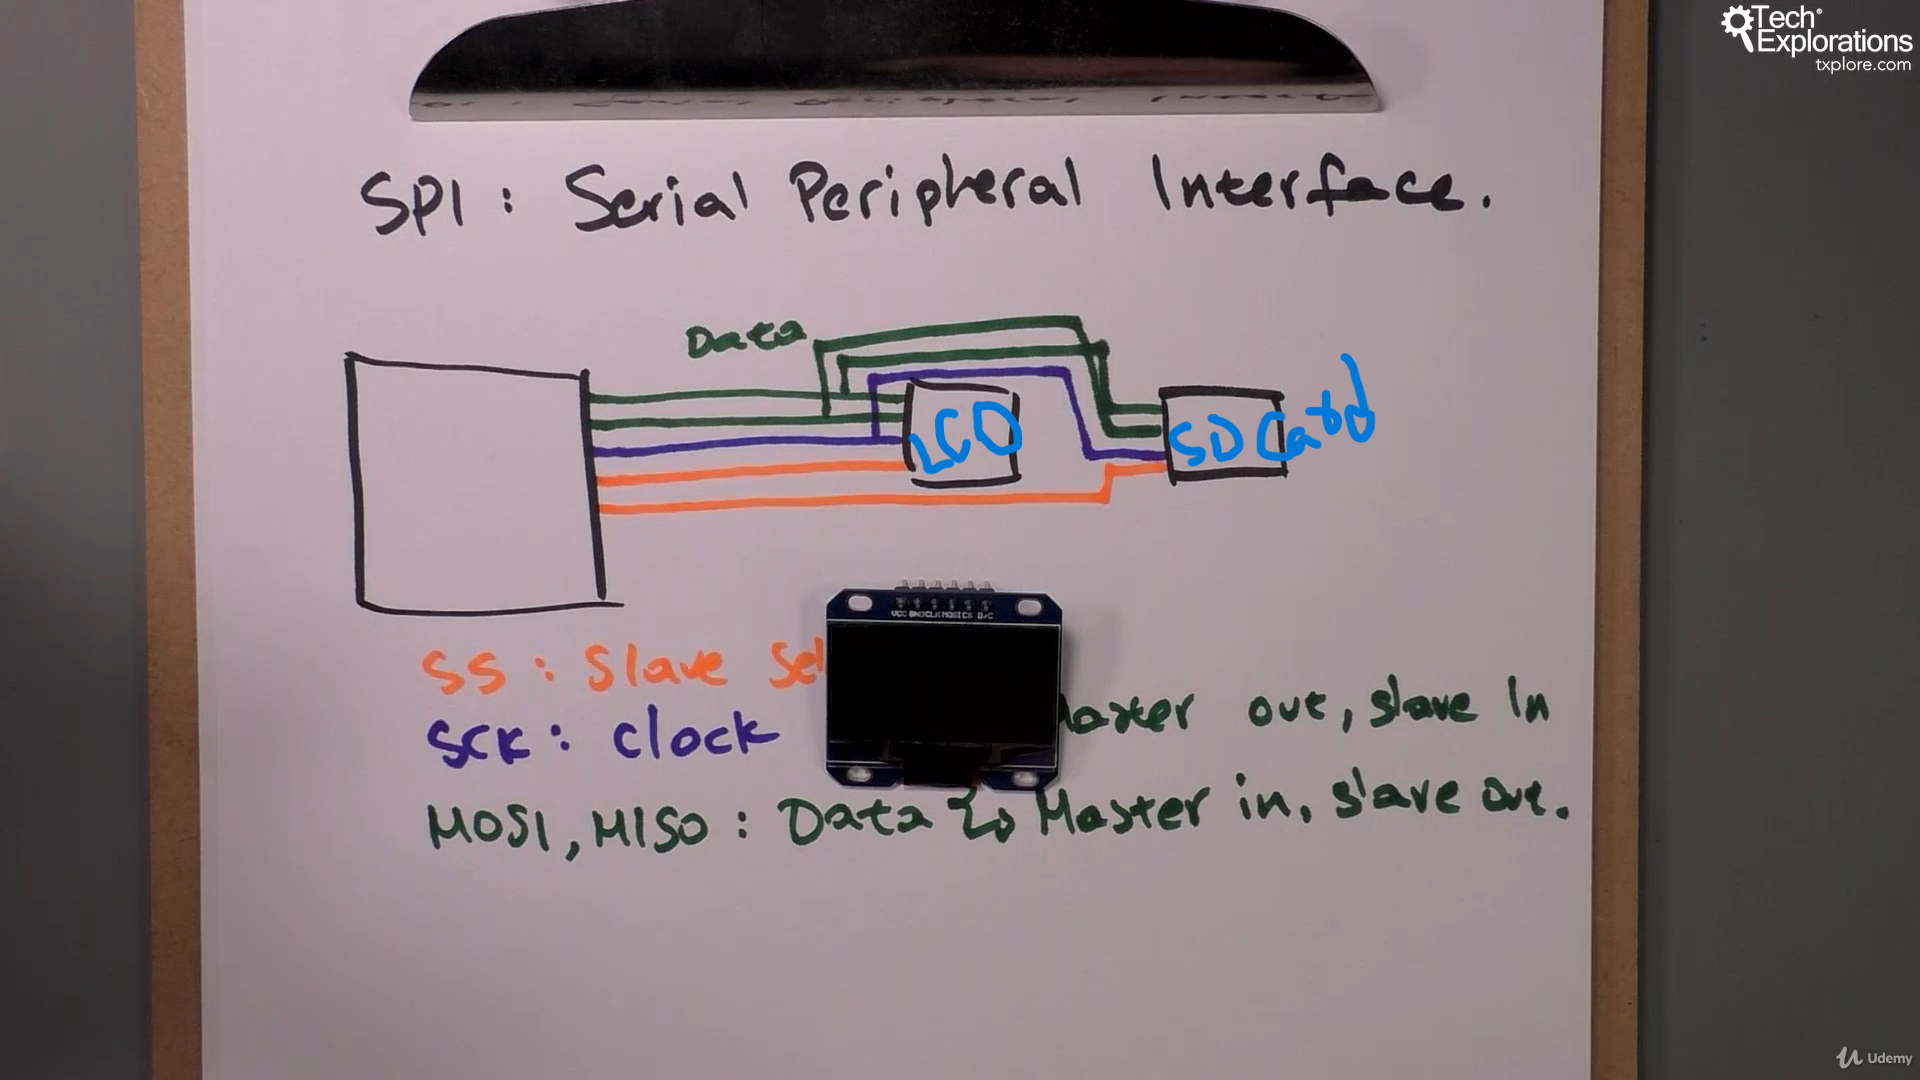 Tech
Explorations
txplore.com
SPI : Serial Peripheral Interface.
Data
LCD
SD Card
VCC GND CLK MOSI CS D/C
SS : Slave Sel
SCK : Clock
Master out, slave In
MOSI, MISO : Data
Master in, slave out.
Udemy